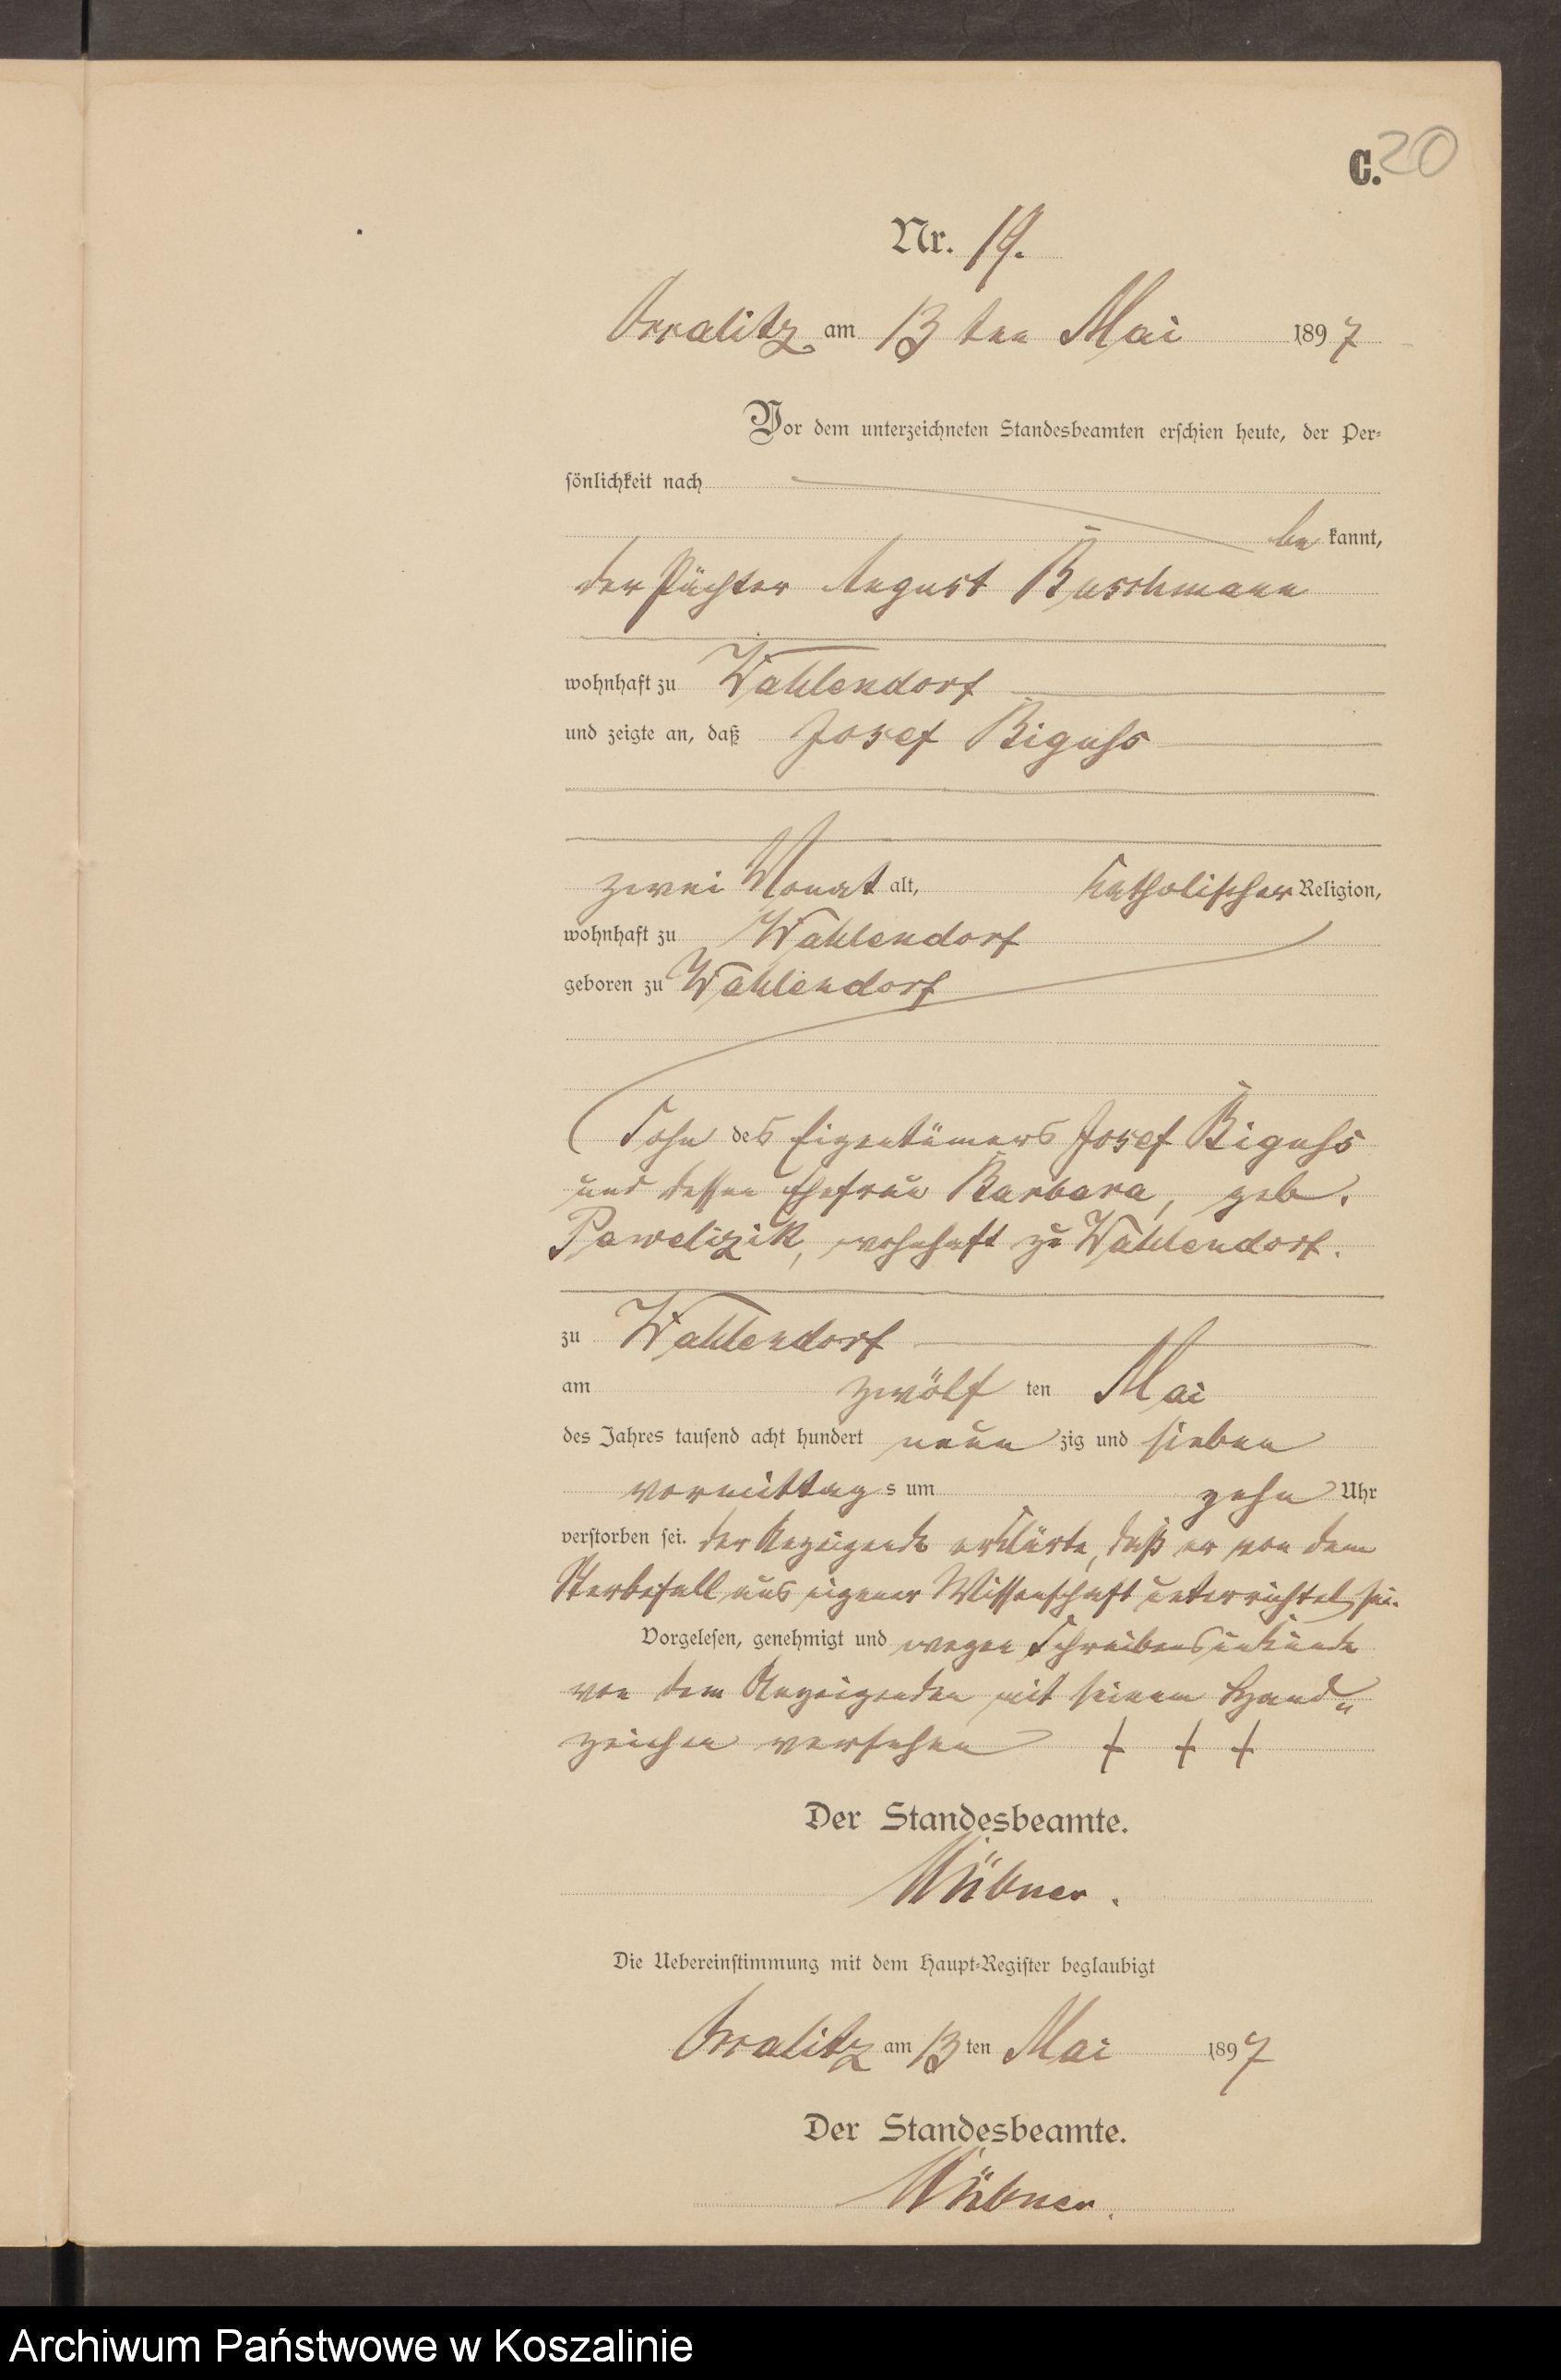 C. 20
Nr. 19.
am 13ten Mai 1897
Vor dem unterzeichneten Standesbeamten erschien heute, der Per-
sönlichkeit nach
bekannt,
der Pächter August Buschmann
wohnhaft zu Wahlendorf
und zeigte an, daß Josef Biguhs
zwei Monat alt, katholischer Religion,
wohnhaft zu Wahlendorf
geboren zu Wahlendorf
Sohn des Eigentümers Josef Biguhs
und dessen Ehefrau Barbara, geb.
Pawelizik, wohnhaft zu Wahlendorf.
zu Wahlendorf
am zwölf ten Mai
des Jahres tausend acht hundert neun zig und sieben
vormittag s um zehn Uhr
verstorben sei. der Anzeigende erklärte, daß er von dem
Sterbefall aus eigener Wissenschaft unterrichtet sei.
Vorgelesen, genehmigt und wegen Schreibensunkunde
von dem Anzeigenden mit seinem Hand-
zeichen versehen + + +
Der Standesbeamte.
Die Uebereinstimmung mit dem Haupt-Register beglaubigt
am 13 ten Mai 1897
Der Standesbeamte.
Archiwum Państwowe w Koszalinie